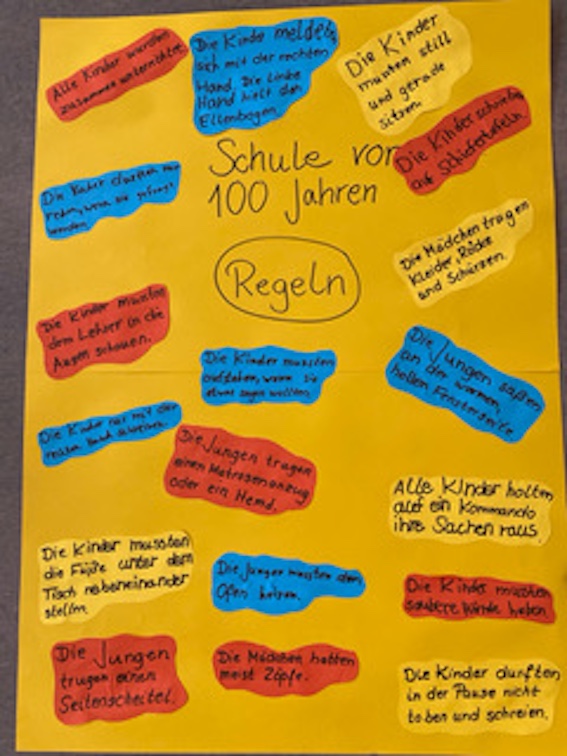 Alle Kinder wurden
zusammen unterrichtet.
Die Kinder meldeten
sich mit der rechten
Hand. Die linke
Hand hielt den
Ellenbogen.
Die Kinder
mussten still
und gerade
sitzen.
Schule vor
100 Jahren
Die Kinder schrieben
auf Schiefertafeln.
Die Kinder durften nur
reden, wenn sie gefragt
wurden.
Die Mädchen trugen
Kleider, Röcke
und Schürzen.
Regeln
Die Kinder mussten
dem Lehrer in die
Augen schauen.
Die Kinder mussten
aufstehen, wenn sie
etwas sagen wollten.
Die Jungen saßen
an der warmen,
hellen Fensterseite.
Die Kinder nur mit der
rechten Hand schreiben.
Die Jungen trugen
einen Matrosenanzug
oder ein Hemd.
Alle Kinder holten
auf ein Kommando
ihre Sachen raus.
Die Kinder mussten
die Füße unter dem
Tisch nebeneinander
stellen.
Die Jungen mussten den
Ofen heizen.
Die Kinder mussten
saubere Hände haben.
Die Jungen
trugen einen
Seitenscheitel.
Die Mädchen hatten
meist Zöpfe.
Die Kinder durften
in der Pause nicht
toben und schreien.